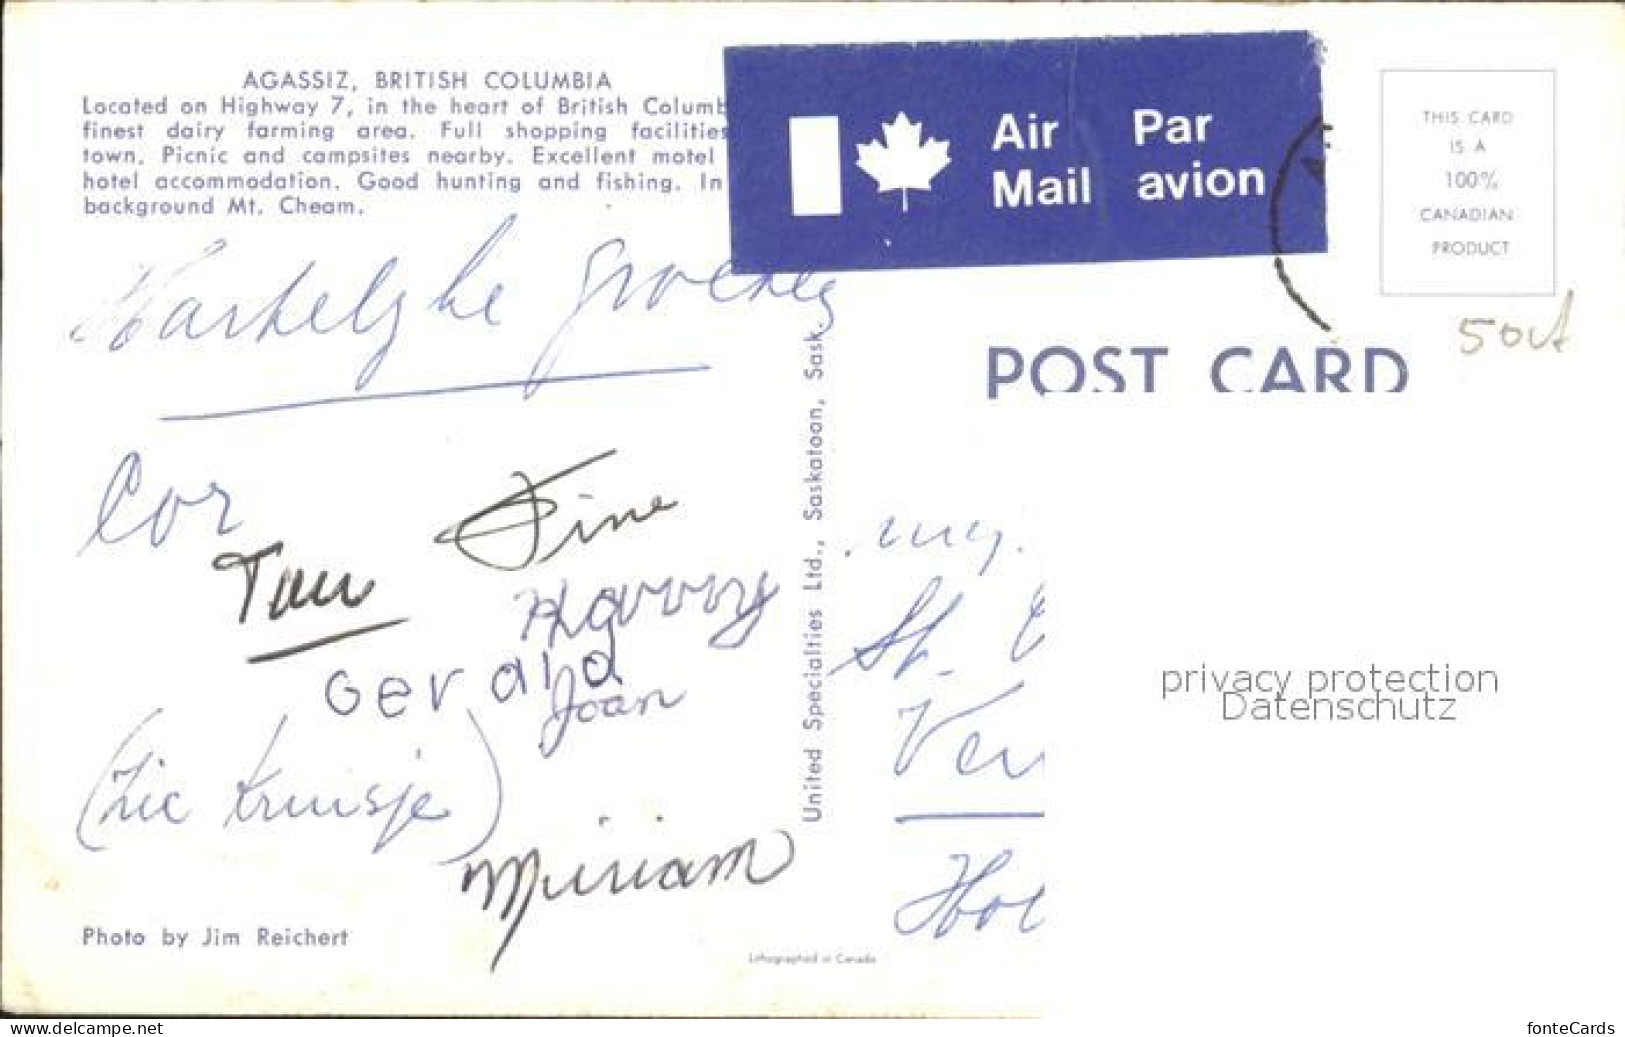 AGASSIZ, BRITISH COLUMBIA
Located on Highway 7, in the heart of British Columb
finest dairy farming area. Full shopping facilities
town. Picnic and campsites nearby. Excellent motel
hotel accommodation. Good hunting and fishing. In
background Mt. Cheam.
Air Mail
Par avion
THIS CARD
IS A
100%
CANADIAN
PRODUCT
POST CARD
Hartelyke groeten
Cor
Tine
Harry
Gerald
Joan
(Zie Kruisje)
Miriam
United Specialties Ltd., Saskatoon, Sask.
St.
privacy protection
Datenschutz
Photo by Jim Reichert
Lithographed in Canada
www.delcampe.net
fonteCards